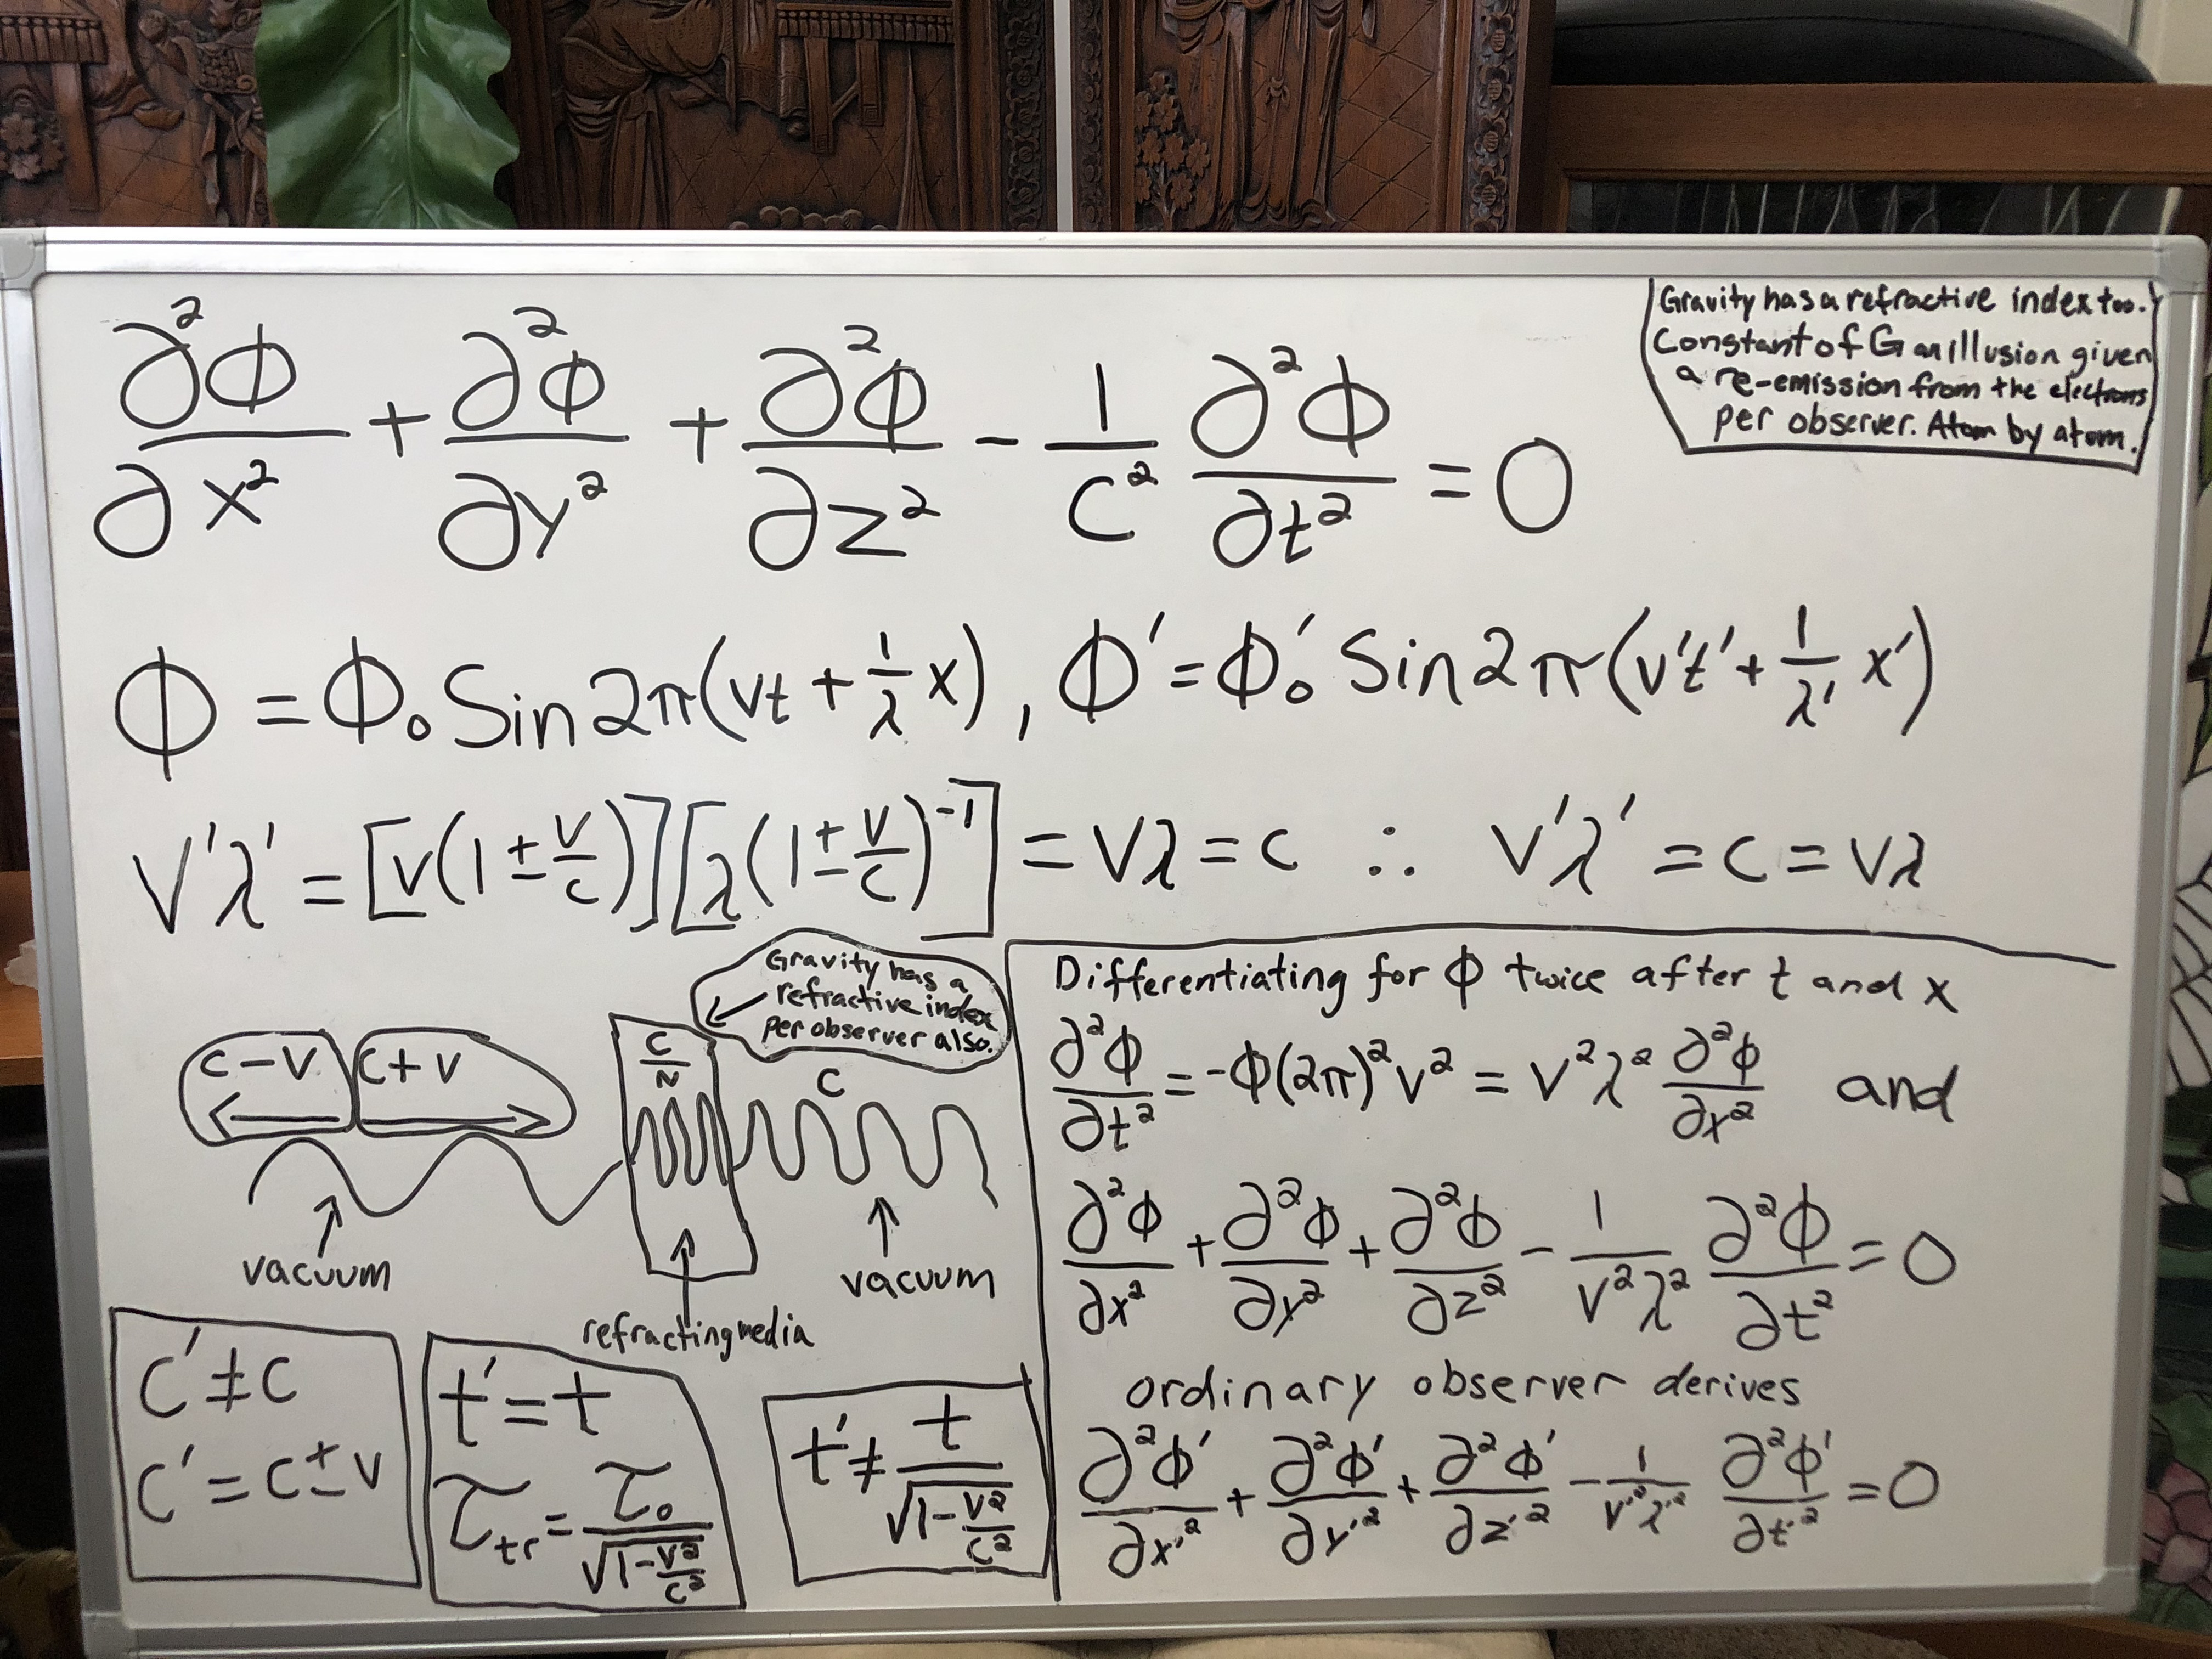 ∂²Φ/∂x² + ∂²Φ/∂y² + ∂²Φ/∂z² - 1/C² ∂²Φ/∂t² = 0
Gravity has a refractive index too.
Constant of G an illusion given
a re-emission from the electrons
per observer. Atom by atom.
Φ = Φ₀ Sin2π(vt + 1/λ x), Φ' = Φ₀' Sin2π(v't' + 1/λ' x')
V'λ' = [v(1 ± v/c)][λ(1 ± v/c)⁻¹] = Vλ = c ∴ V'λ' = c = Vλ
Gravity has a
refractive index
per observer also.
c-v
c+v
c/n
c
vacuum
refracting media
vacuum
c' ≠ c
c' = c ± v
t' = t
τ_tr = τ₀/√(1-v²/c²)
t' ≠ t/√(1-v²/c²)
Differentiating for Φ twice after t and x
∂²Φ/∂t² = -Φ(2π)²v² = v²λ² ∂²Φ/∂x² and
∂²Φ/∂x² + ∂²Φ/∂y² + ∂²Φ/∂z² - 1/v²λ² ∂²Φ/∂t² = 0
ordinary observer derives
∂²Φ'/∂x'² + ∂²Φ'/∂y'² + ∂²Φ'/∂z'² - 1/v'²λ'² ∂²Φ'/∂t'² = 0